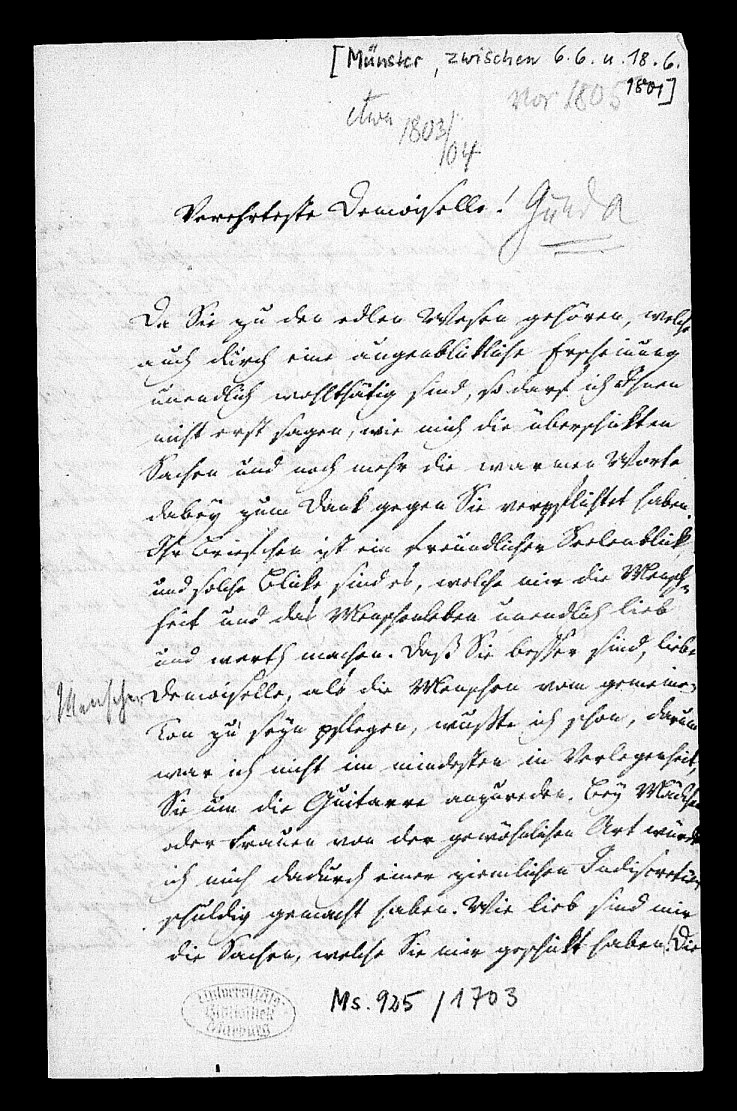 [Münster, zwischen 6.6. u. 18.6.
1801]
vor 1805
etwa 1803/
04
Verehrteste Demoiselle! Gunda
Da Sie zu den edlen Wesen gehören, welche
auch durch eine augenblikliche Erscheinung
unendlich wohlthätig sind, so darf ich Ihnen
nicht erst sagen, wie mich die überschikten
Sachen und noch mehr die warmen Worte
dabey zum Dank gegen Sie verpflichtet haben.
Ihr Briefchen ist ein freundlicher Seelenblik
und solche Blike sind es, welche mir die Mensch-
heit und das Menschenleben unendlich lieb
und werth machen. Daß Sie besser sind, liebe
Menschen
Demoiselle, als die Menschen vom gemeinen
Ton zu seyn pflegen, wußte ich schon, darum
war ich nicht im mindesten in Verlegenheit,
Sie um die Guitarre anzureden. Bey Mädchen
oder Frauen von der gewöhnlichen Art würde
ich mich dadurch einer ziemlichen Indiscretion
schuldig gemacht haben. Wie lieb sind mir
die Sachen, welche Sie mir geschikt haben! Die
Universitäts-
Bibliothek
Marburg
Ms. 925 / 1703